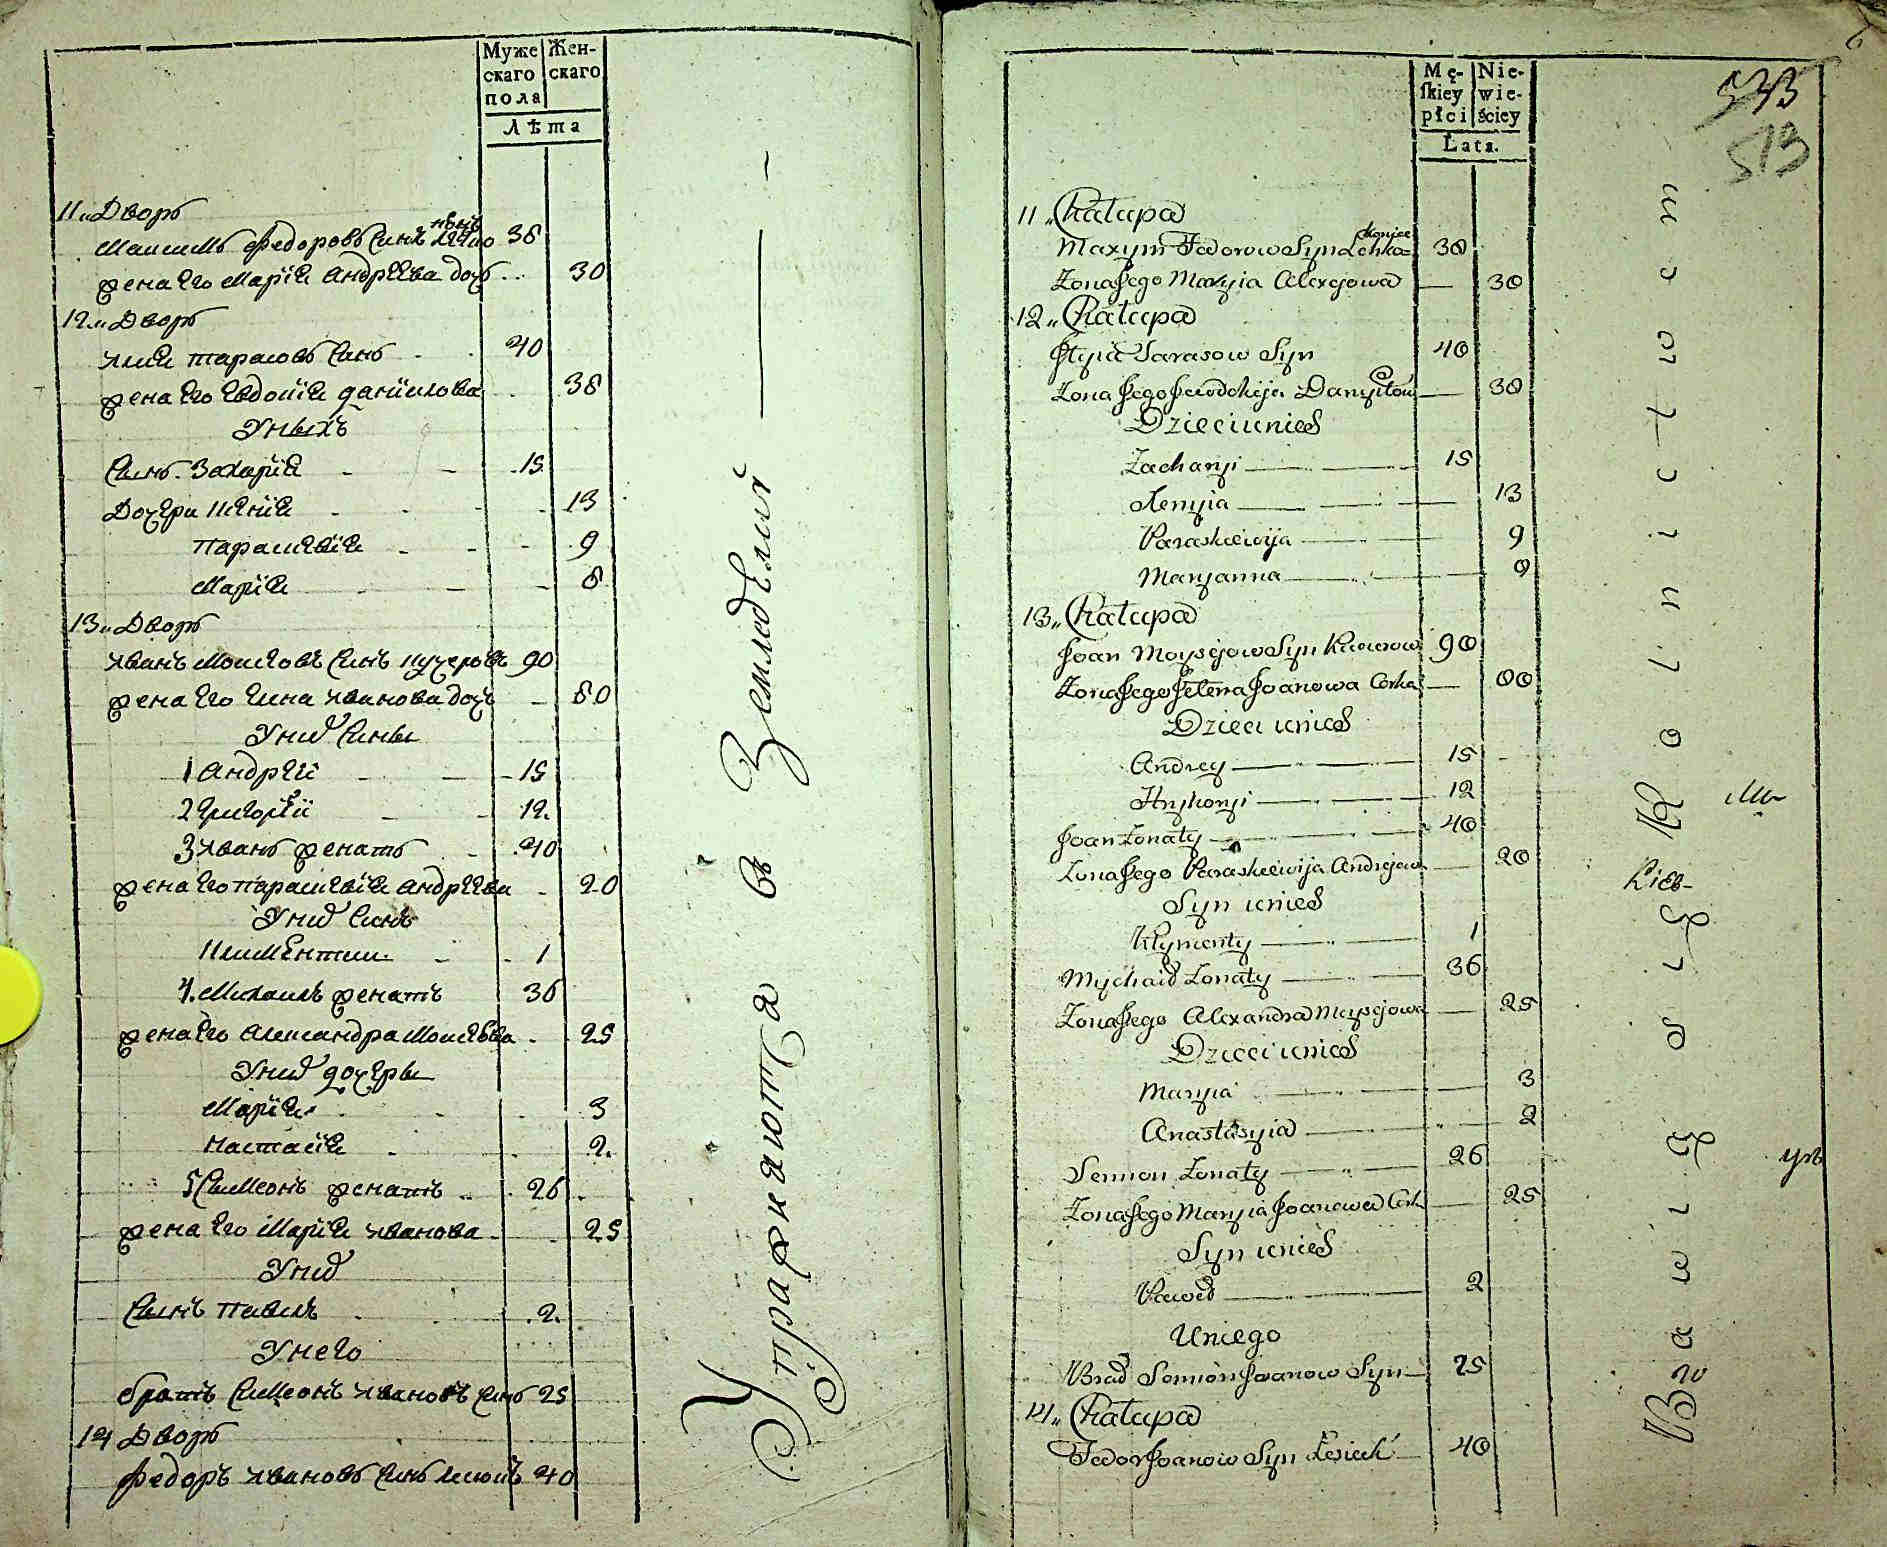 Муже
скаго
пола
Жен-
скаго
Лѣта
11„ Дворъ
Максимъ Федоровъ Синъ 38
жена Его Марія Андрѣева дочъ 30
12„ Дворъ
Илия Тарасовъ Синъ 40
жена Его Евдокія Даниилова 38
У них
Синъ Захарій 15
Дочери Ксенія 13
Параскевія 9
Марія 8
13„ Дворъ
Иванъ Моисеовъ Синъ Кучеровъ 90
жена Его Елена Иванова дочъ 80
У них Сины
1 Андрей 15
2 Григорій 12
3 Иванъ женатъ 40
жена Его Параскевія Андрѣева 20
У них Синъ
Климентии 1
4. Михаилъ женатъ 36
жена Его Александра Моисѣева 25
У них дочеры
Марія 3
Настасія 2
5 Симеонъ женатъ 26
жена Его Марія Иванова 25
У них
Синъ Павелъ 2
У него
братъ Симеонъ Ивановъ Синъ 25
14 Дворъ
Федоръ Ивановъ Синъ 40
Упражняются въ Земледѣлии
Mę-
skiey
płci
Nie-
wie-
ściey
Lata.
533
513
11„ Chałupa
Maxym Fedorow Syn 38
Zona Jego Maryia Alexejowa 30
12„ Chałupa
Jłyia Tarasow Syn 40
Zona Jego Jewdokija Danyłow 38
Dzieci unich
Zacharyi 15
Xenyia 13
Paraskiewija 9
Maryanna 8
13„ Chałupa
Joan Moysejow Syn Kuczerow 90
Zona Jego Jelena Joanowa Corka 80
Dzieci unich
Andrey 15
Hryhoryi 12
Joan Zonaty 40
Zona Jego Paraskiewija Andrejow 20
Syn unich
Kłymenty 1
Mychaid Zonaty 36
Zona Jego Alexandra Moysejowa 25
Dzieci unich
Maryia 3
Anastasyia 2
Semion Zonaty 26
Zona Jego Maryia Joanowa Cork 25
Syn unich
Paweł 2
Uniego
Brad Semion Joanow Syn 25
14„ Chałupa
Fedor Joanow Syn 40